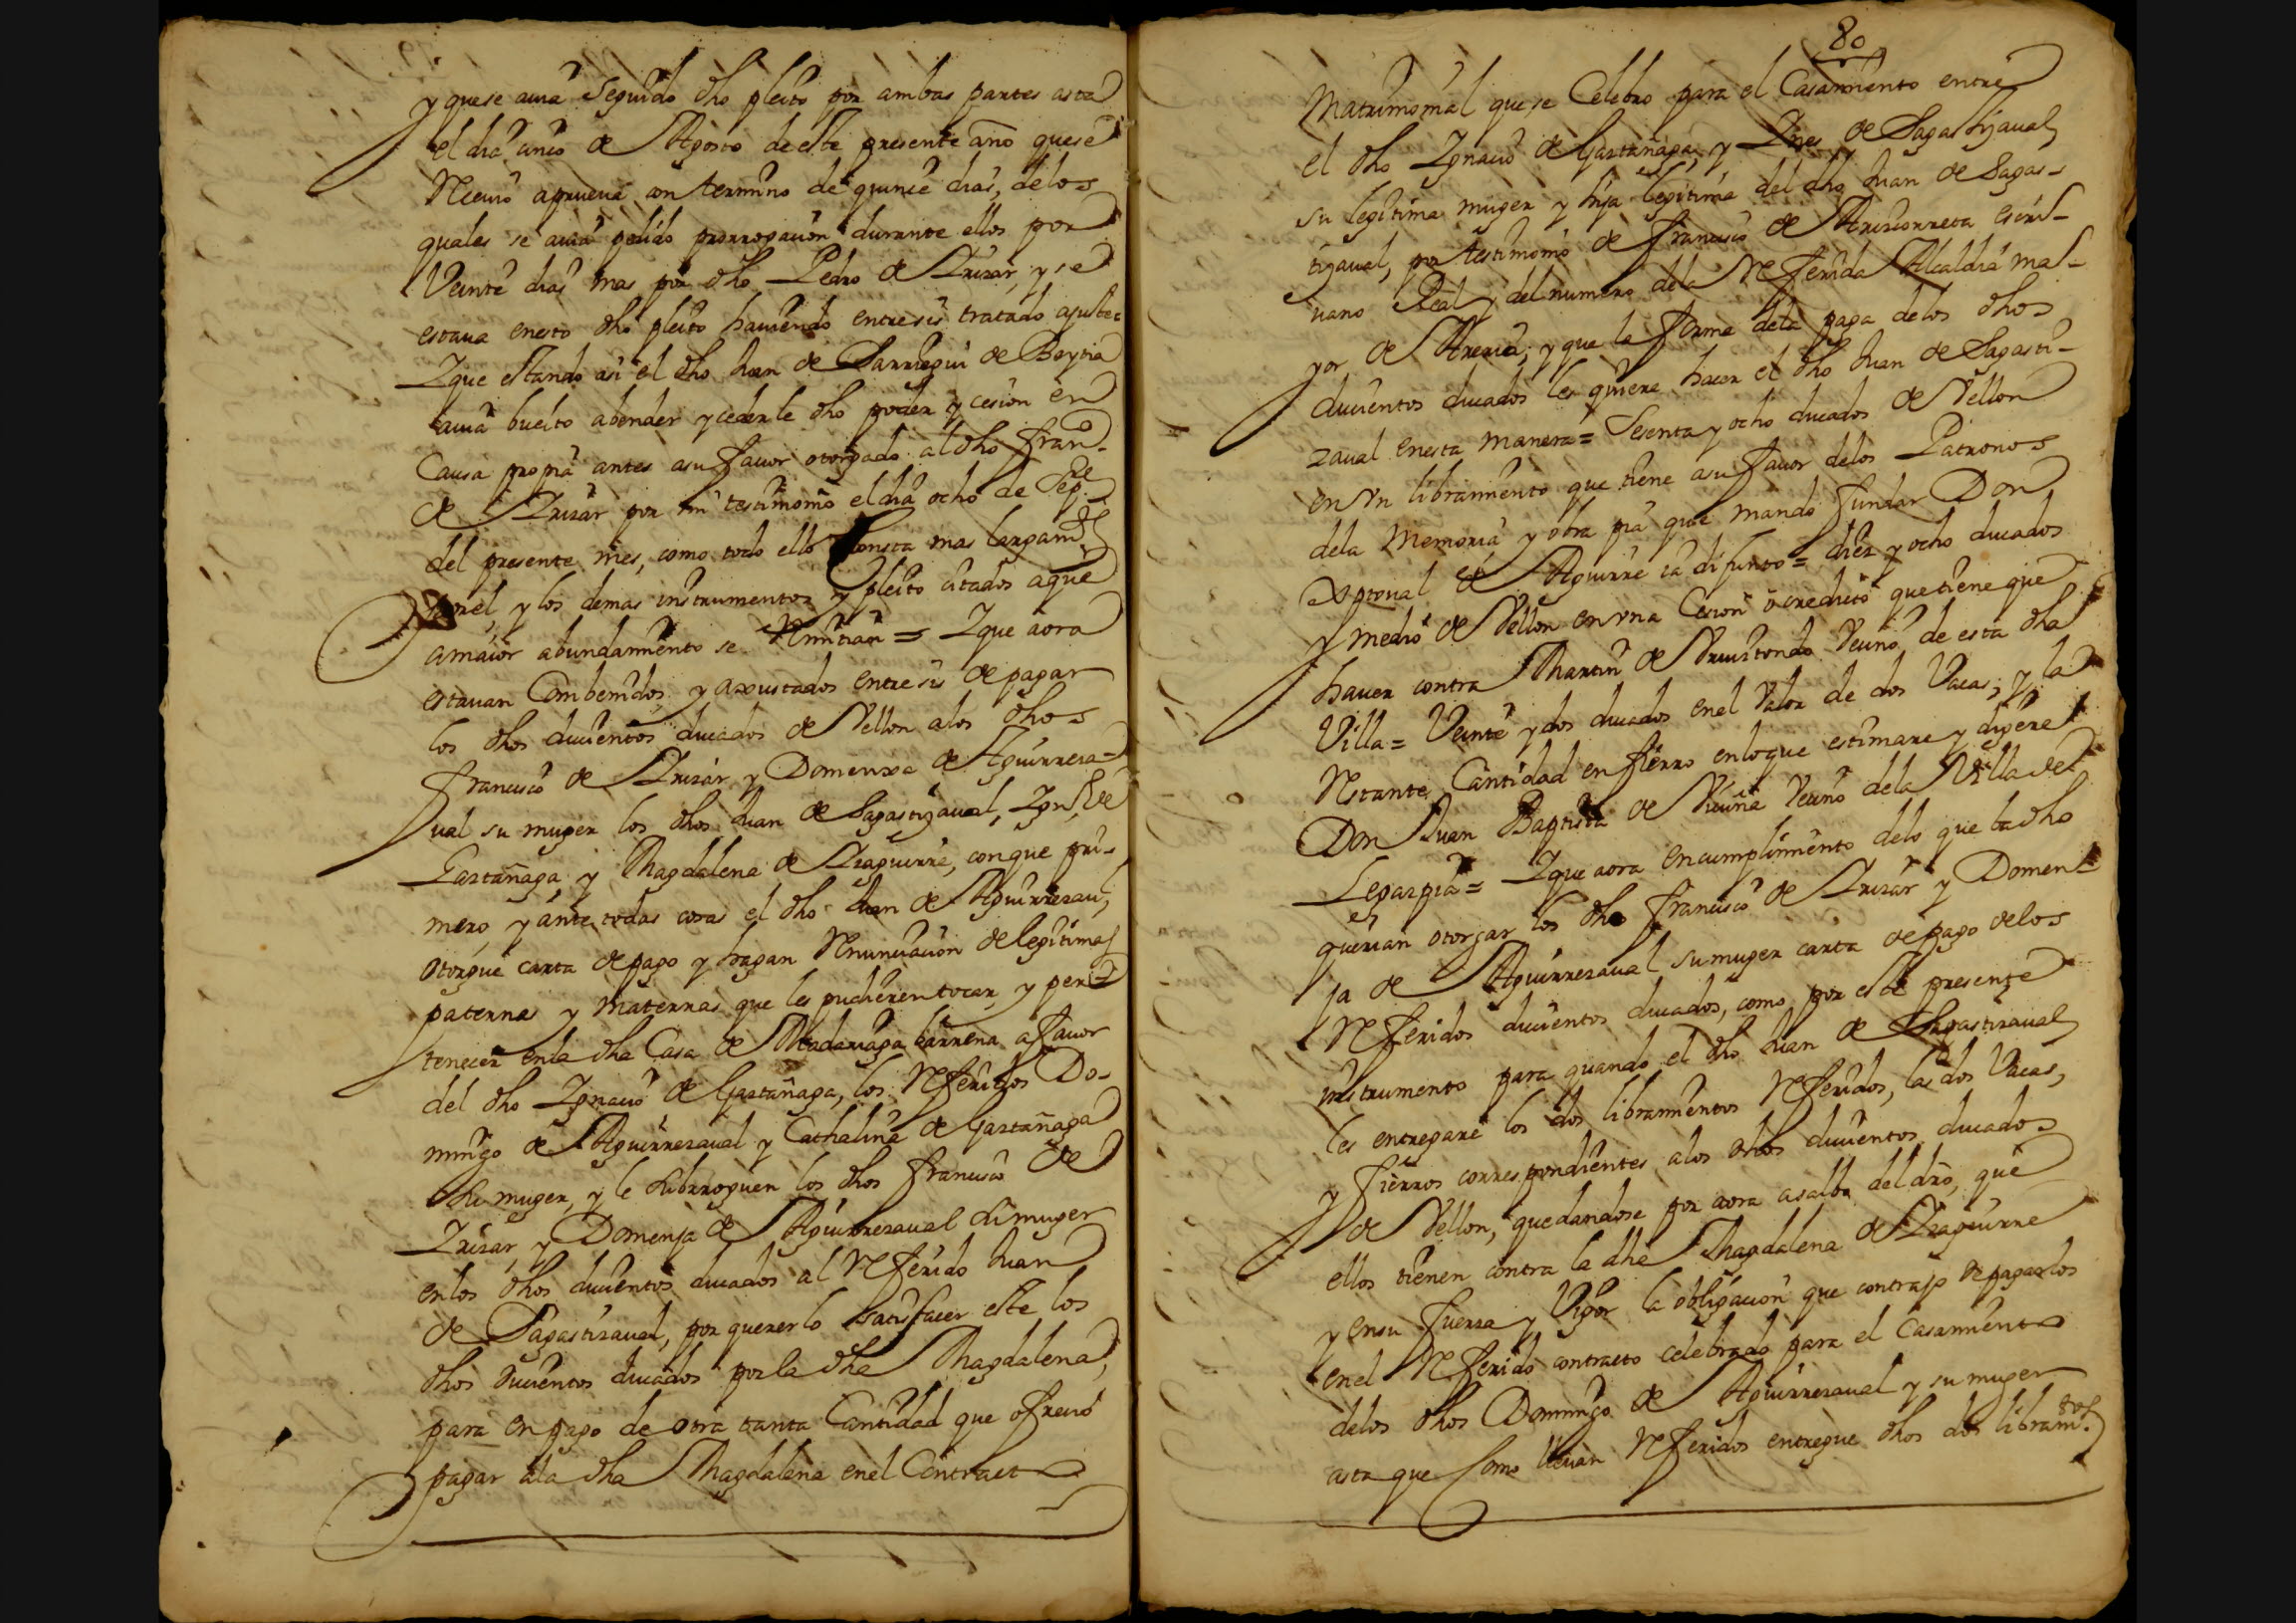 y quese auia Seguido dho pleito por ambas partes asta
el dia cinco de Agosto de este presente año quese
Reciuio aprueua con termino de quinse dias, delos
quales se auia pedido prorrogacion durante ellos por
Veinte dias mas por dho Pedro de Yrizar, y se
estaua enesto dho pleito hauiendo entresis tratado ajustes
Y que estando asi el dho Juan de Sarriegui de Beytia
auia buelto abender y cederle dho poder y cesion en
Causa propia antes asu fauor otorgado al dho Franco.
de Yrizar por mi testimonio el dia ocho de Sepe.
del presente mes, como todo ello Consta mas largamte.
por el, y los demas instrumentos y pleito citados aque
amaior abundamiento se Rimitian = Y que aora
estauan Combenidos, y axustados entresis de pagar
los dhos ducientos ducados de Vellon alos dhos
Francisco de Yrizar y Domenxa de Aguirreza=
ual su muger los dhos Juan de Sagastizaual, Ygno. de
Gastañaga, y Magdalena de Yzaguirre, conque pri-
mero, y ante todas cosas el dho Juan de Aguirrezaul,
Otorgue carta de pago y hagan Renunciacion de legitimas
paternas y maternas que les pudieren tocar, y per=
tenecer enla dha Casa de Madariaga barrena afauor
del dho Ygnacio de Gastañaga, los Referidos Do-
mingo de Aguirrezaual y Cathalina de Gastañaga
Su muger, y le Subrroguen los dhos Francisco de
Yrizar, y Domenja de Aguirrezaual Su muger
enlos dhos ducientos ducados al Referido Juan
de Sagastizaual, por quererlo Satisfacer este los
dhos ducientos ducados por la dha Magdalena,
para en pago de otra tanta Cantidad que ofrecio
pagar ala dha Magdalena enel Contracto
80
Matrimonial que se Celebro para el Casamiento entre
el dho Ygnacio de Gastañaga, y Ynes de Sagastizaual,
su legitima muger y hija legitima del dho Juan de Sagas-
tizaual, por testimonio de Francisco de Arizcorreta escri-
uano Real y del numero dela Referida Alcaldia ma-
yor de Areria; y que la forma dela paga delos dhos
ducientos ducados les quiere hacer el dho Juan de Sagasti-
zaual enesta manera = Sesenta y ocho ducados de Vellon
en Vn libramiento que tiene asu fauor delos Patronos
dela Memoria y obra pia que mando fundar Don
de Aguirre ia difunto = diez y ocho ducados
y medio de Vellon en vna Cesion o credito que tiene que
hauer contra Martin de Vecino de esta dha
Villa = Veinte y dos ducados enel Valor de dos Vacas, y la
Restante Cantidad en fierro enloque estimare y dijere
Don Juan Baptista de Vicuña Vecino dela Villa de
Legazpia = Y que aora encumplimiento delo que ba dho
querian otorgar los dhos Francisco de Yrizar y Domen=
ja de Aguirrezaual su muger carta de pago delos
Referidos ducientos ducados, como por este presente
instrumento para quando el dho Juan de Sagastizaual
les entregare los dos libramientos Referidos, las dos Vacas,
y fierros correspondientes alos dhos ducientos ducados
de Vellon, quedandose por aora asalbo del dro, que
ellos tienen contra la dha Magdalena de Yzaguirre
y ensu fuerza y Vigor la obligacion que contrajo de pagarlos
enel Referido contracto celebrado para el Casamiento
delos dhos Domingo de Aguirrezaual y su muger
asta que Como lleuan Referidos entregue dhos dos libramtos.